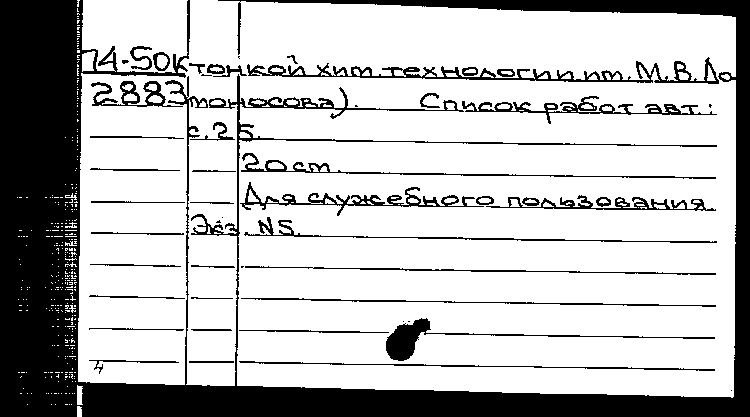 74-50к тонкой хим. технологии им. М.В. Ло
2883 моносова). Список работ авт.:
с. 25.
20 см.
Для служебного пользования.
Экз. N5.
4